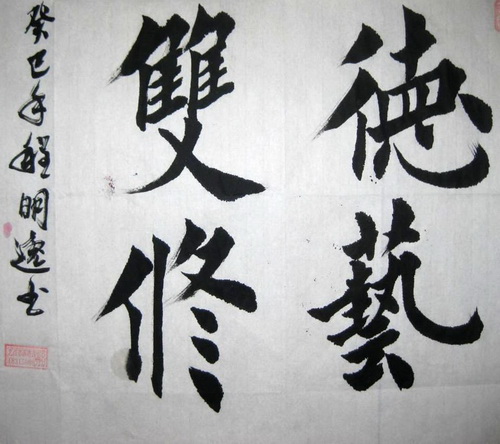 德藝
雙修
癸巳年程明遠书